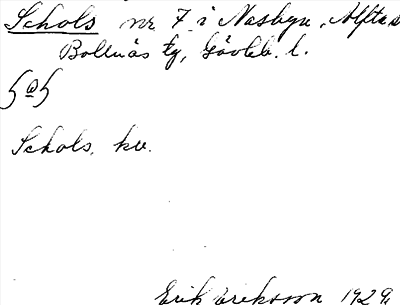 Schols nr 7 i Näsbyn, Alfta s
Bollnäs tg, Gävleb. l.
Schols, kv.
Erik Eriksson 1929